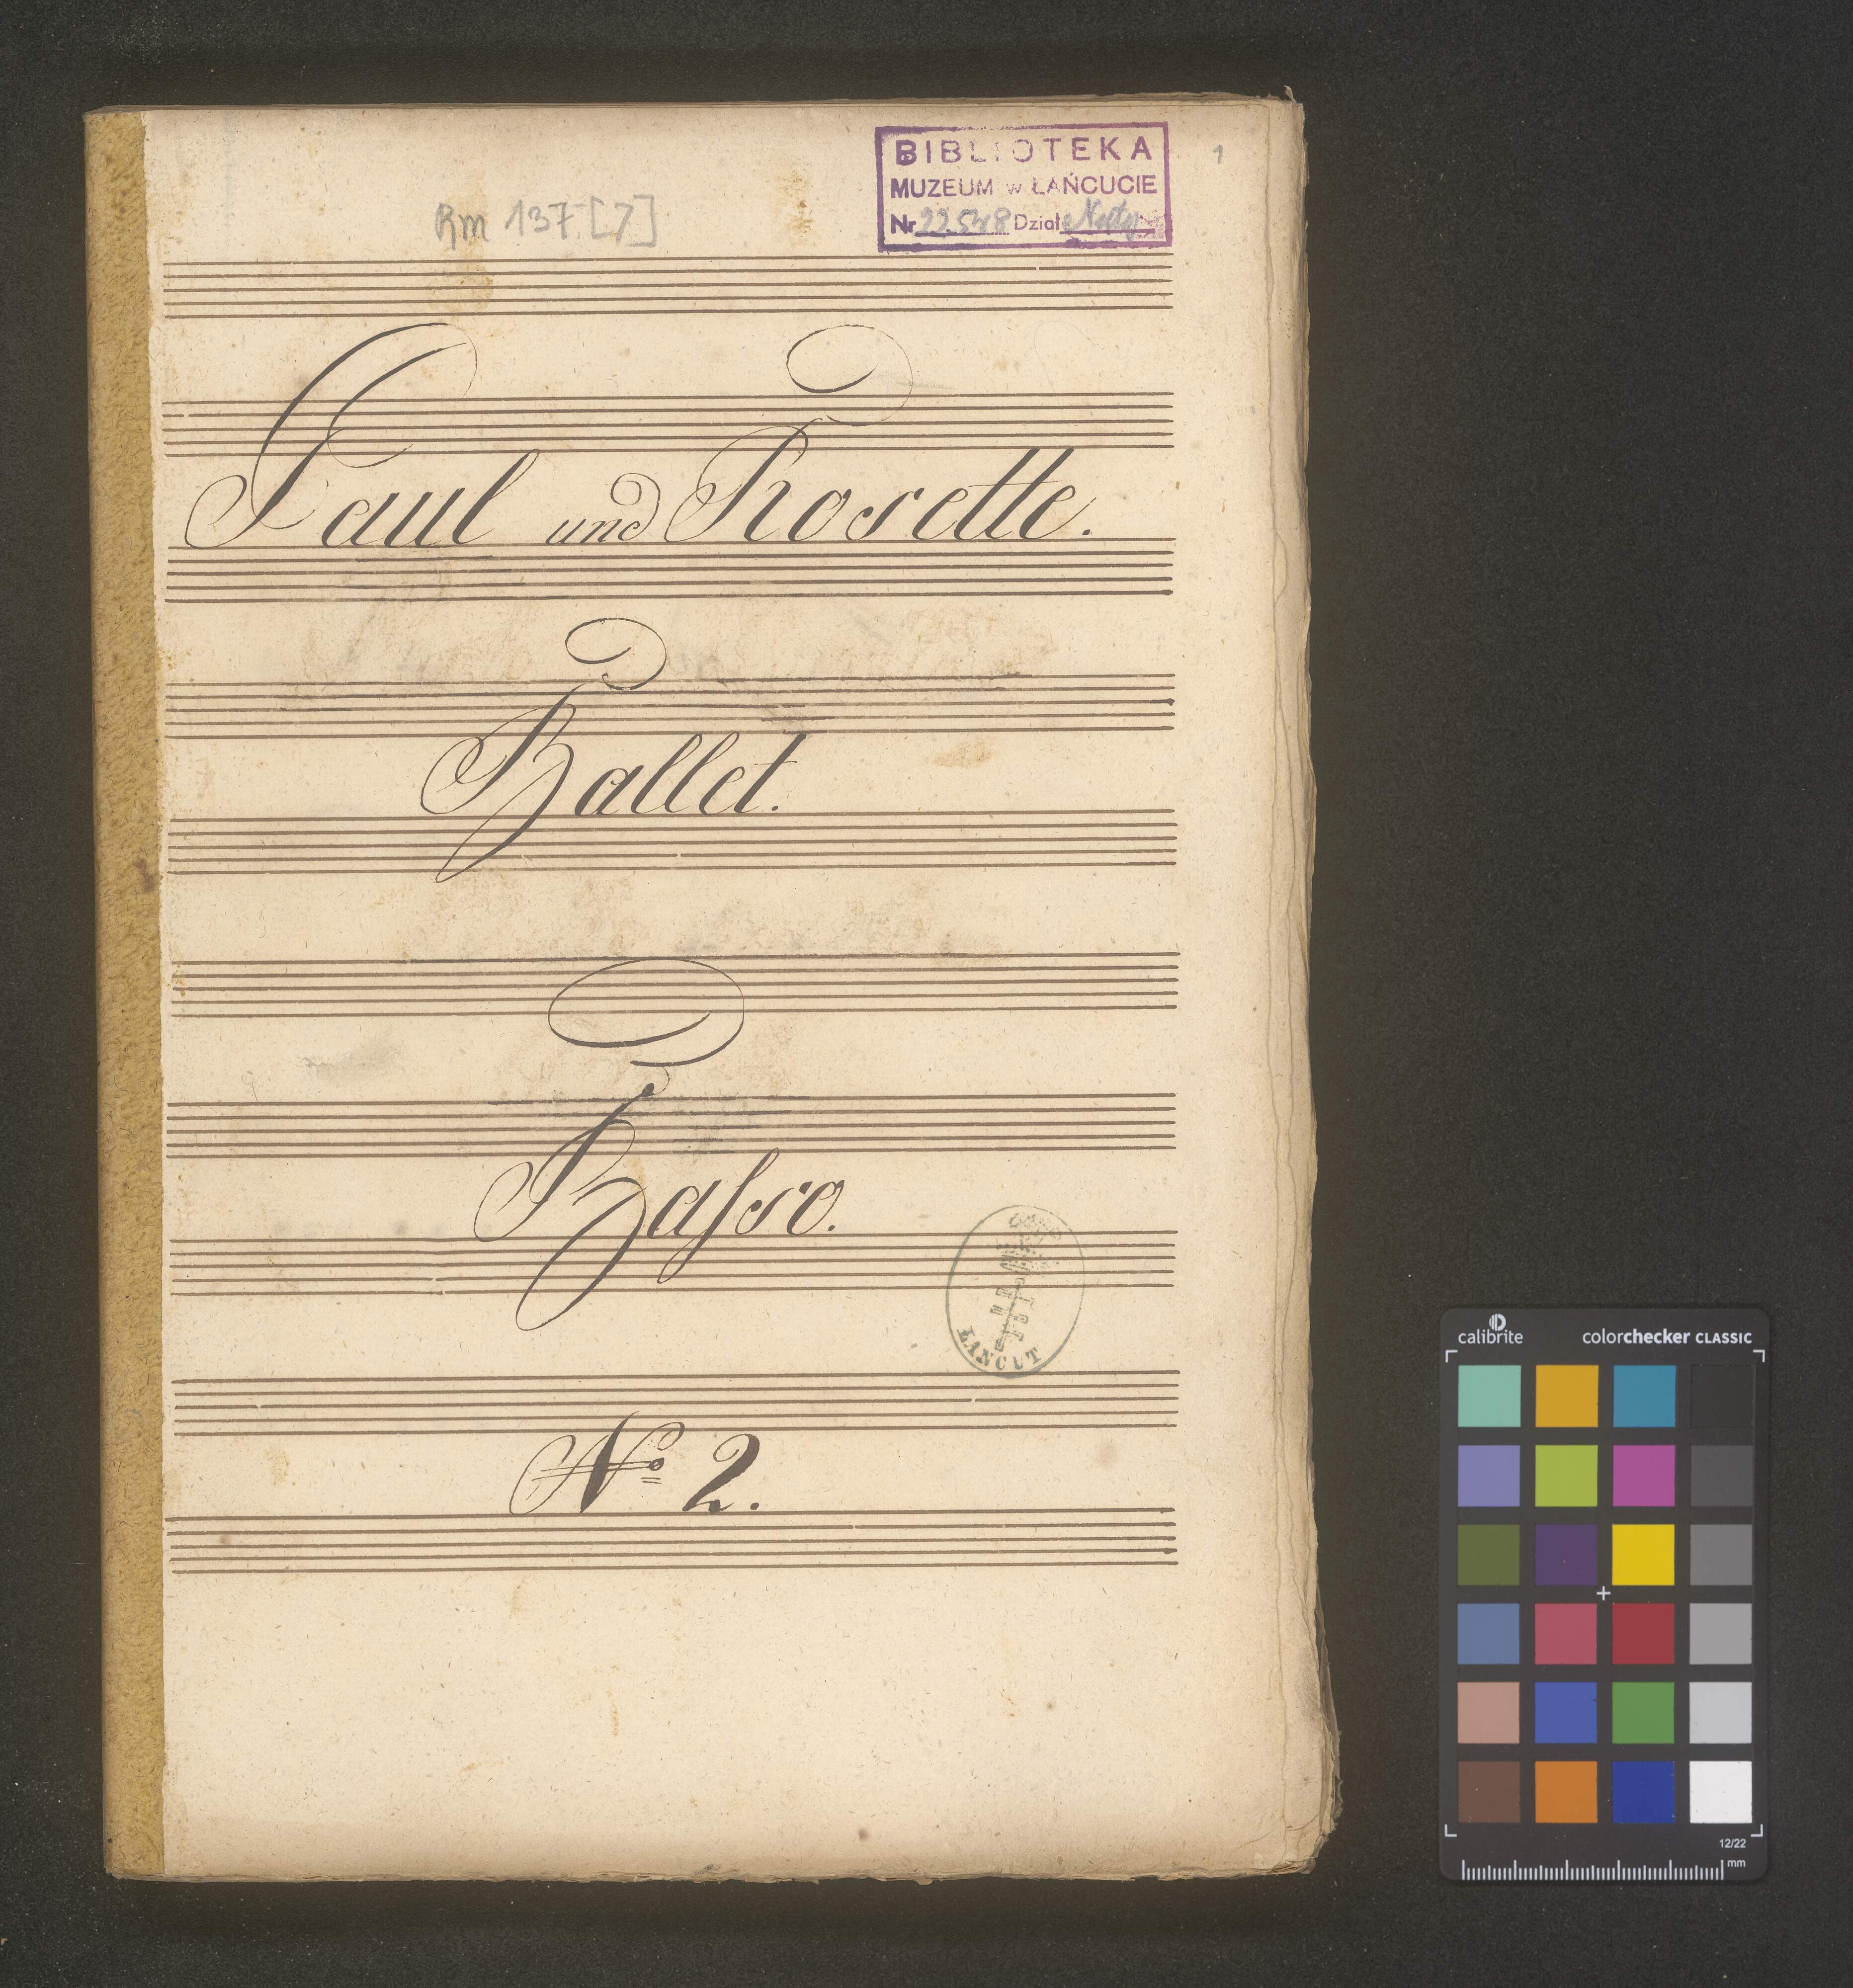 Rm 137 [7]
BIBLIOTEKA
MUZEUM w ŁAŃCUCIE
Nr 22.548 Dział Nuty
1
Paul und Rosette.
Ballet.
Baſso.
ŁAŃCUT
No 2.
calibrite colorchecker CLASSIC
12/22
mm